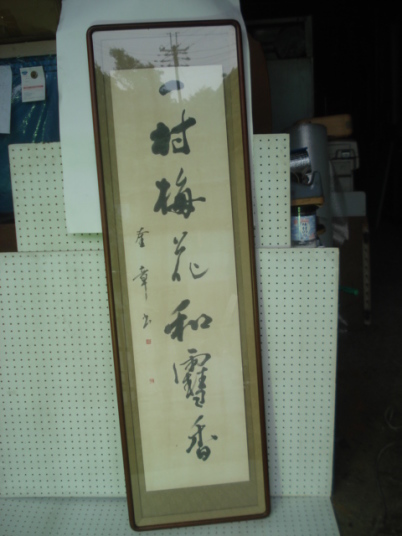 一村梅花和雪香
奎章书